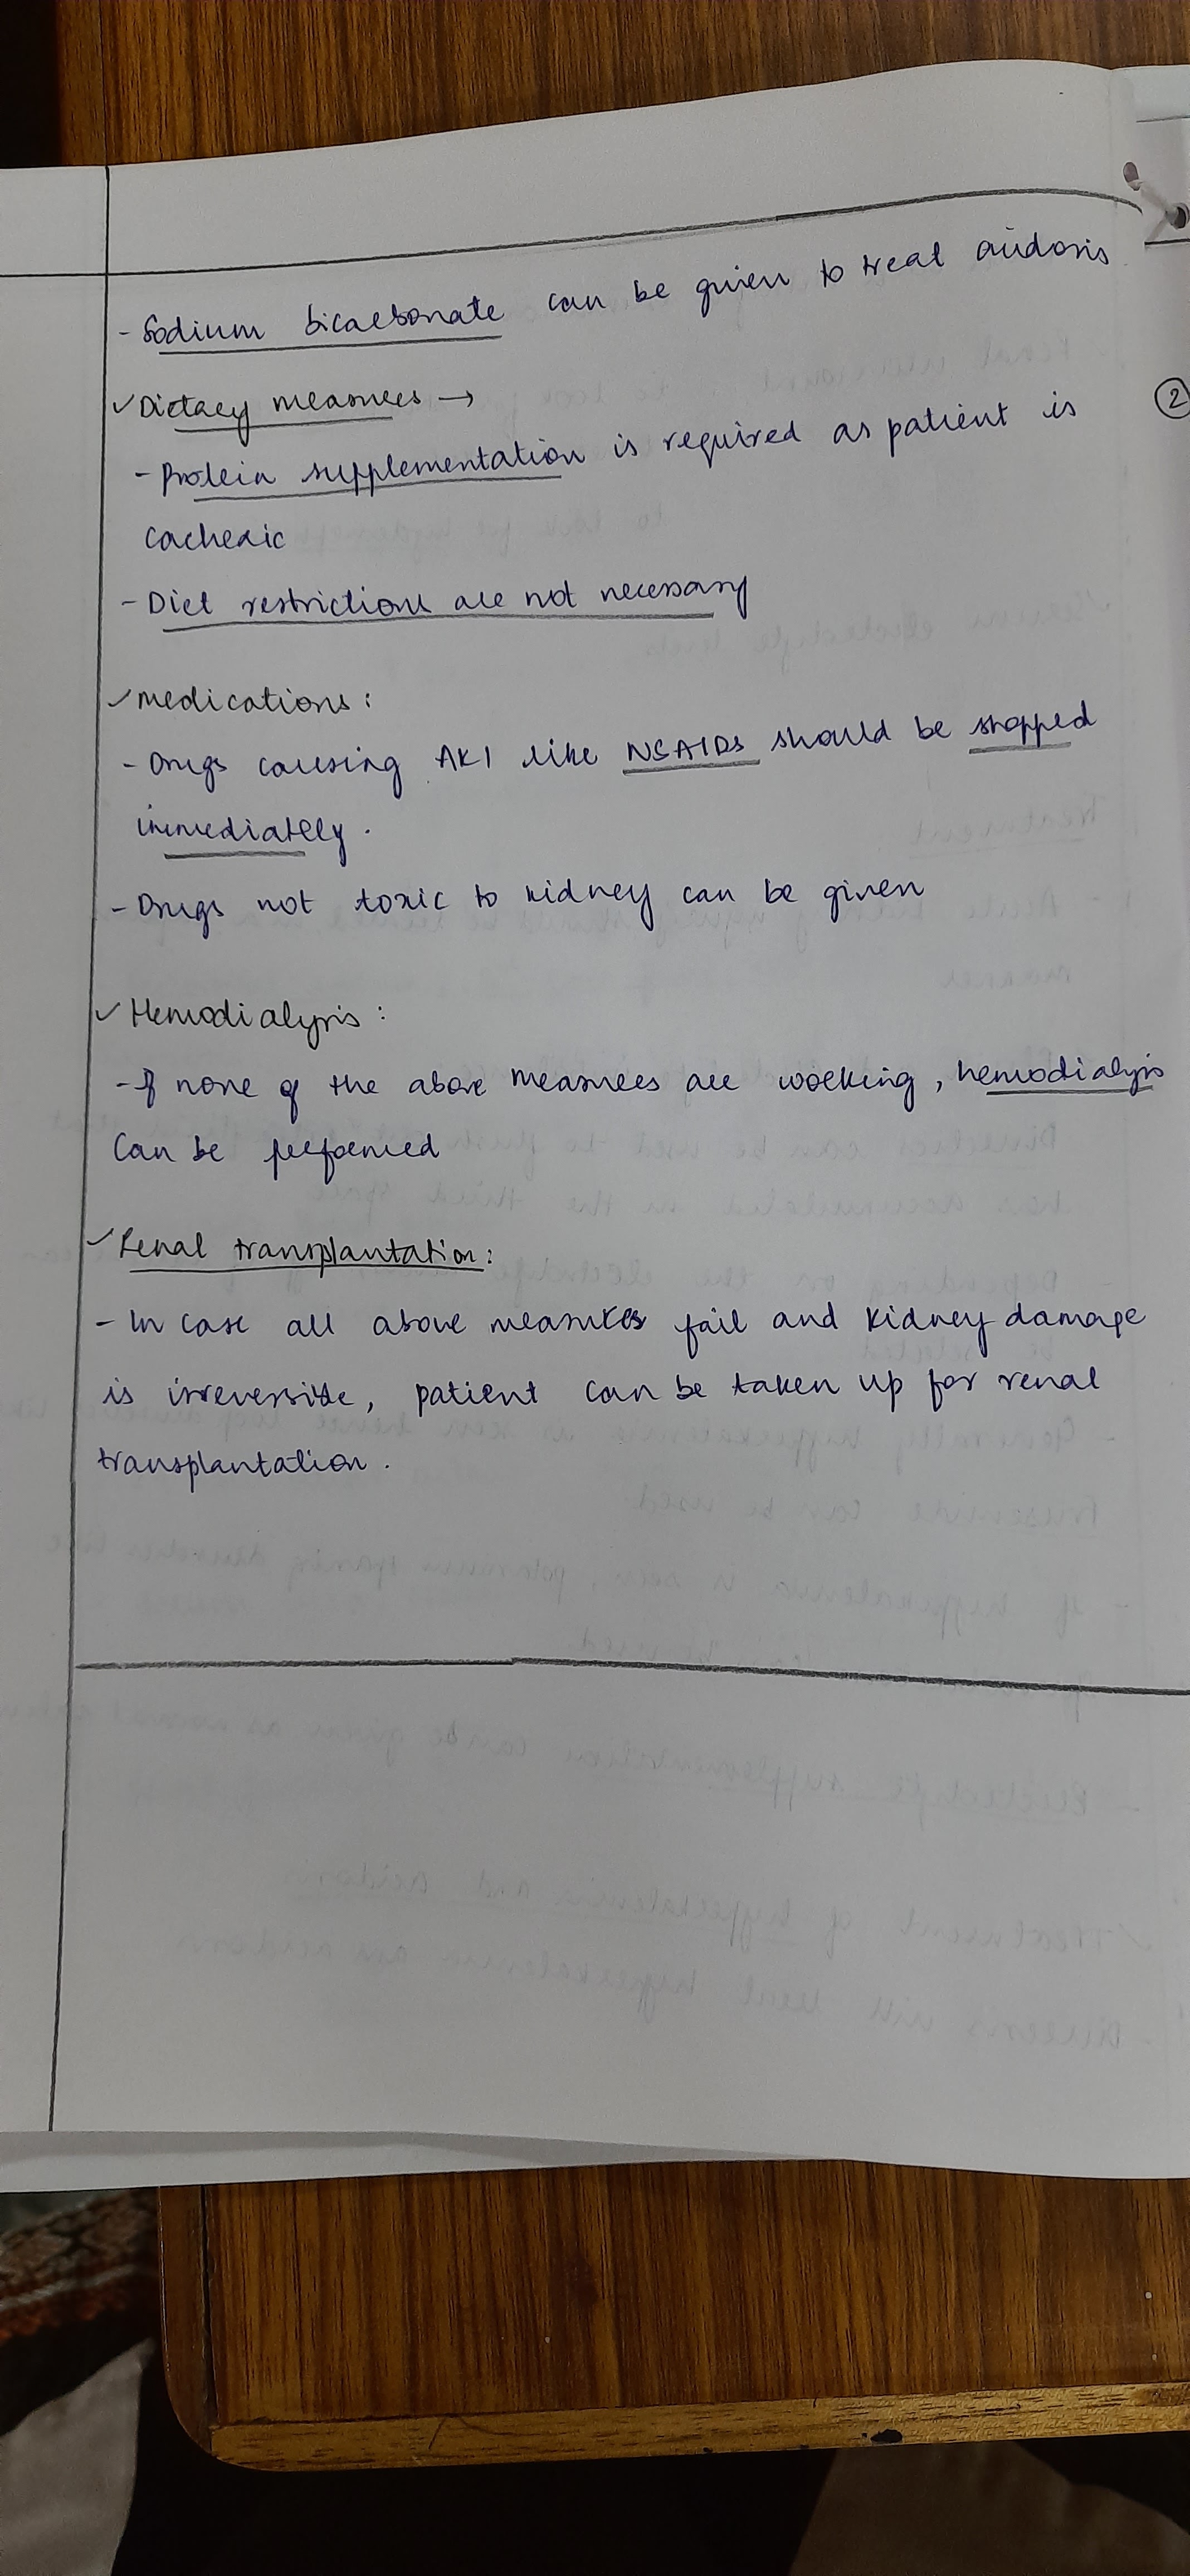 - Sodium bicarbonate can be given to treat acidosis
✓ Dietary measures →
②
- Protein supplementation is required as patient is
cachexic
- Diet restrictions are not necessary
✓ medications :
- Drugs causing AKI like NSAIDs should be stopped
immediately .
- Drugs not toxic to kidney can be given
✓ Hemodialysis :
- If none of the above measures are working , hemodialysis
can be performed
✓ Renal transplantation :
- In case all above measures fail and kidney damage
is irreversible, patient can be taken up for renal
transplantation .